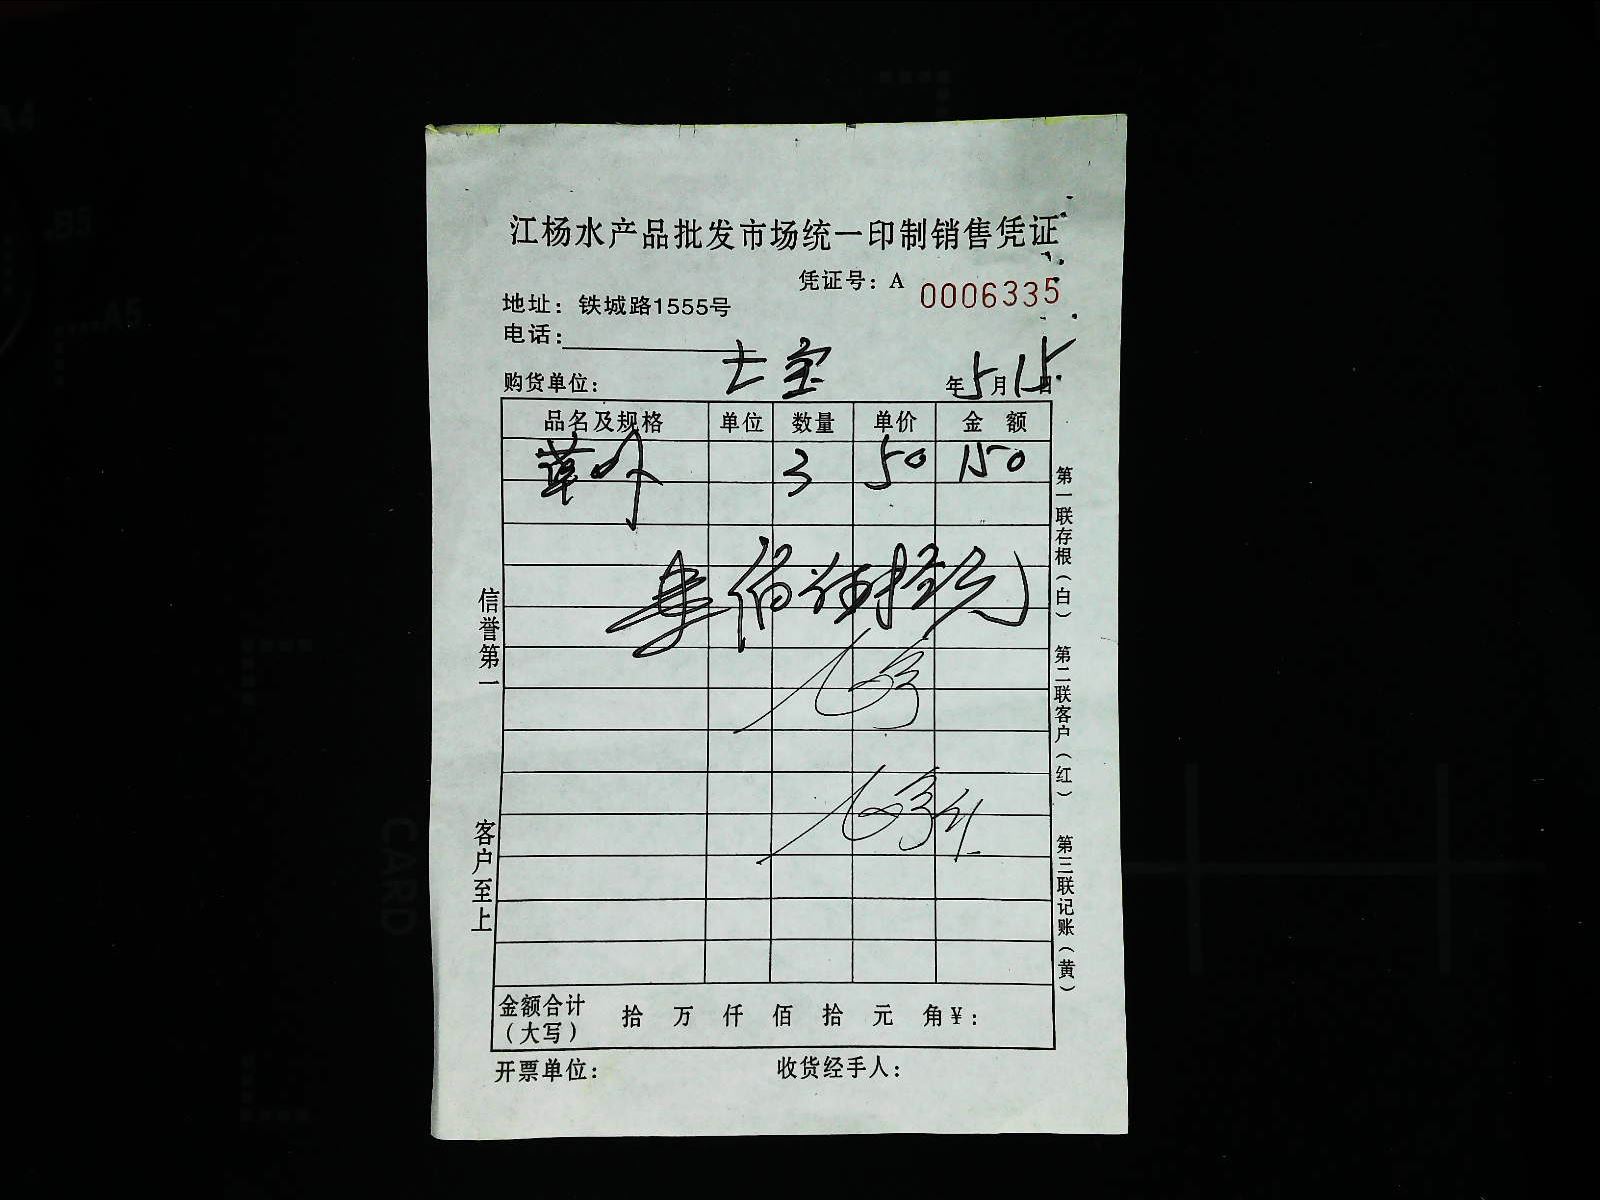 江杨水产品批发市场统一印制销售凭证
凭证号：A 0006335
地址：铁城路1555号
电话：
购货单位： 七宝 年5月15日
品名及规格 单位 数量 单价 金额
草虾 3 50 150
壹佰伍拾元
金额合计（大写） 拾 万 仟 佰 拾 元 角 ¥：
开票单位： 收货经手人：
信誉第一 客户至上
第一联存根（白） 第二联客户（红） 第三联记账（黄）